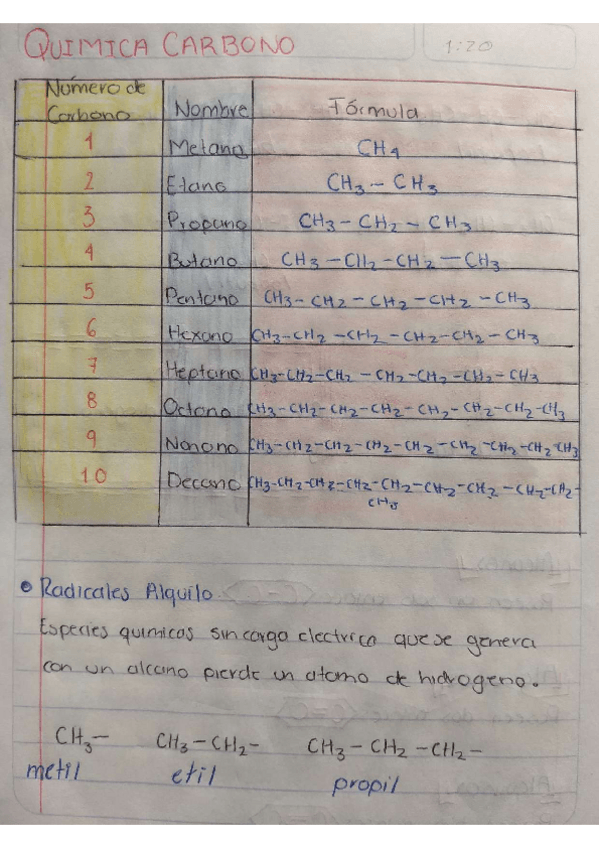 QUIMICA CARBONO
1:20
Número de Carbono Nombre Fórmula
1 Metano CH4
2 Etano CH3 – CH3
3 Propano CH3 – CH2 – CH3
4 Butano CH3 – CH2 – CH2 – CH3
5 Pentano CH3 – CH2 – CH2 – CH2 – CH3
6 Hexano CH3 – CH2 – CH2 – CH2 – CH2 – CH3
7 Heptano CH3 – CH2 – CH2 – CH2 – CH2 – CH2 – CH3
8 Octano CH3 – CH2 – CH2 – CH2 – CH2 – CH2 – CH2 – CH3
9 Nonano CH3 – CH2 – CH2 – CH2 – CH2 – CH2 – CH2 – CH2 – CH3
10 Deccano CH3 – CH2 – CH2 – CH2 – CH2 – CH2 – CH2 – CH2 – CH2 –
CH3
• Radicales Alquilo
Especies quimicas sin carga electrica que se genera
con un alcano pierde un atomo de hidrogeno.
CH3– CH3 – CH2– CH3 – CH2 – CH2–
metil etil propil